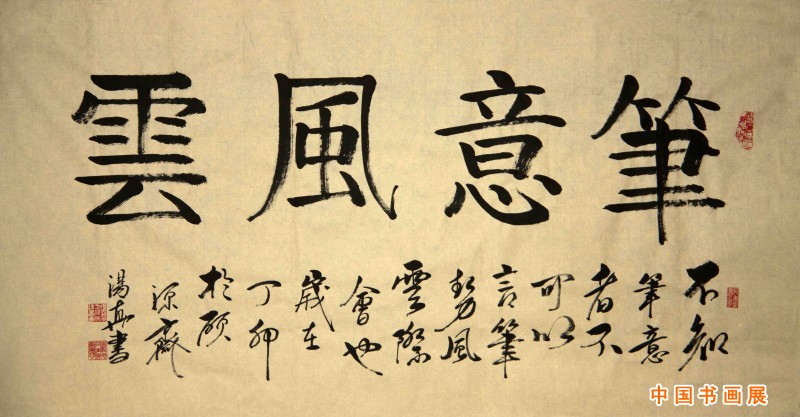 筆意風雲
不知
筆意
者不
可以
言筆
勢風
雲際
會也
歲在
丁卯
於
源齋
湯書
中国书画展